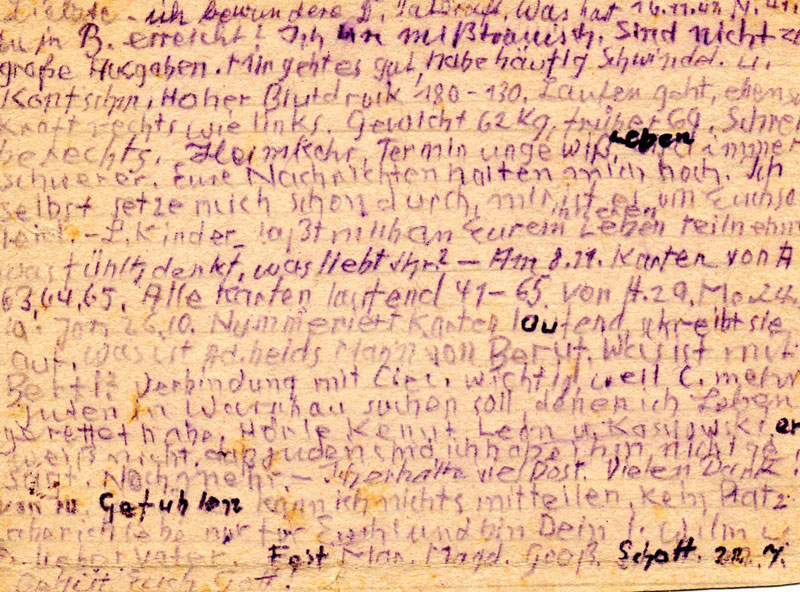 ich bewundere D. Tatkraft. Was hat 16.11.
du in B. erreicht? Ich bin mißtrauisch. Sind nicht zu
große Ausgaben. Mir geht es gut, habe häufig Schwindel u.
Kopfschm, Hoher Blutdruck 180-130. Laufen geht, ebenso
Kraft rechts wie links. Gewicht 62 Kg, früher 69. Schrei
be rechts. Heimkehr, Termin ungewiß, Leben wird immer
schwerer. Eure Nachrichten halten mich hoch. Ich
selbst setze mich schon durch, mir ist es um Euch so
leid. - L. Kinder, laßt mich an Eurem inneren Leben teilnehm
was fühlt, denkt, was liebt Ihr? - Am 8.11. Karten von A
63, 64, 65. Alle Karten laufend 41-65. Von A. 29. Mo. 24.
10. Jan 26.10. Nummeriert Karten laufend, schreibt sie
auf. Was ist Adelheids Mann von Beruf. Was ist mit
Bertl? Verbindung mit Cie.. wichtig weil C. mehr
Juden in Warschau suchen soll denen ich Leben
gerettet habe, Hörle kennt Leon u. Kassjowski er
weiß nicht, daß Juden sind, ich habe ihm nicht ge
sagt. Noch mehr. - Ich erhalte viel Post. Vielen Dank!
von m. Gefühlen kann ich nichts mitteilen, kein Platz
aber ich lebe nur für Euch! und bin Dein l. Wilm u.
E. lieber Vater. Fest Mar. Magd. Groß. Schott. 22. 7.
Behüt Euch Gott.